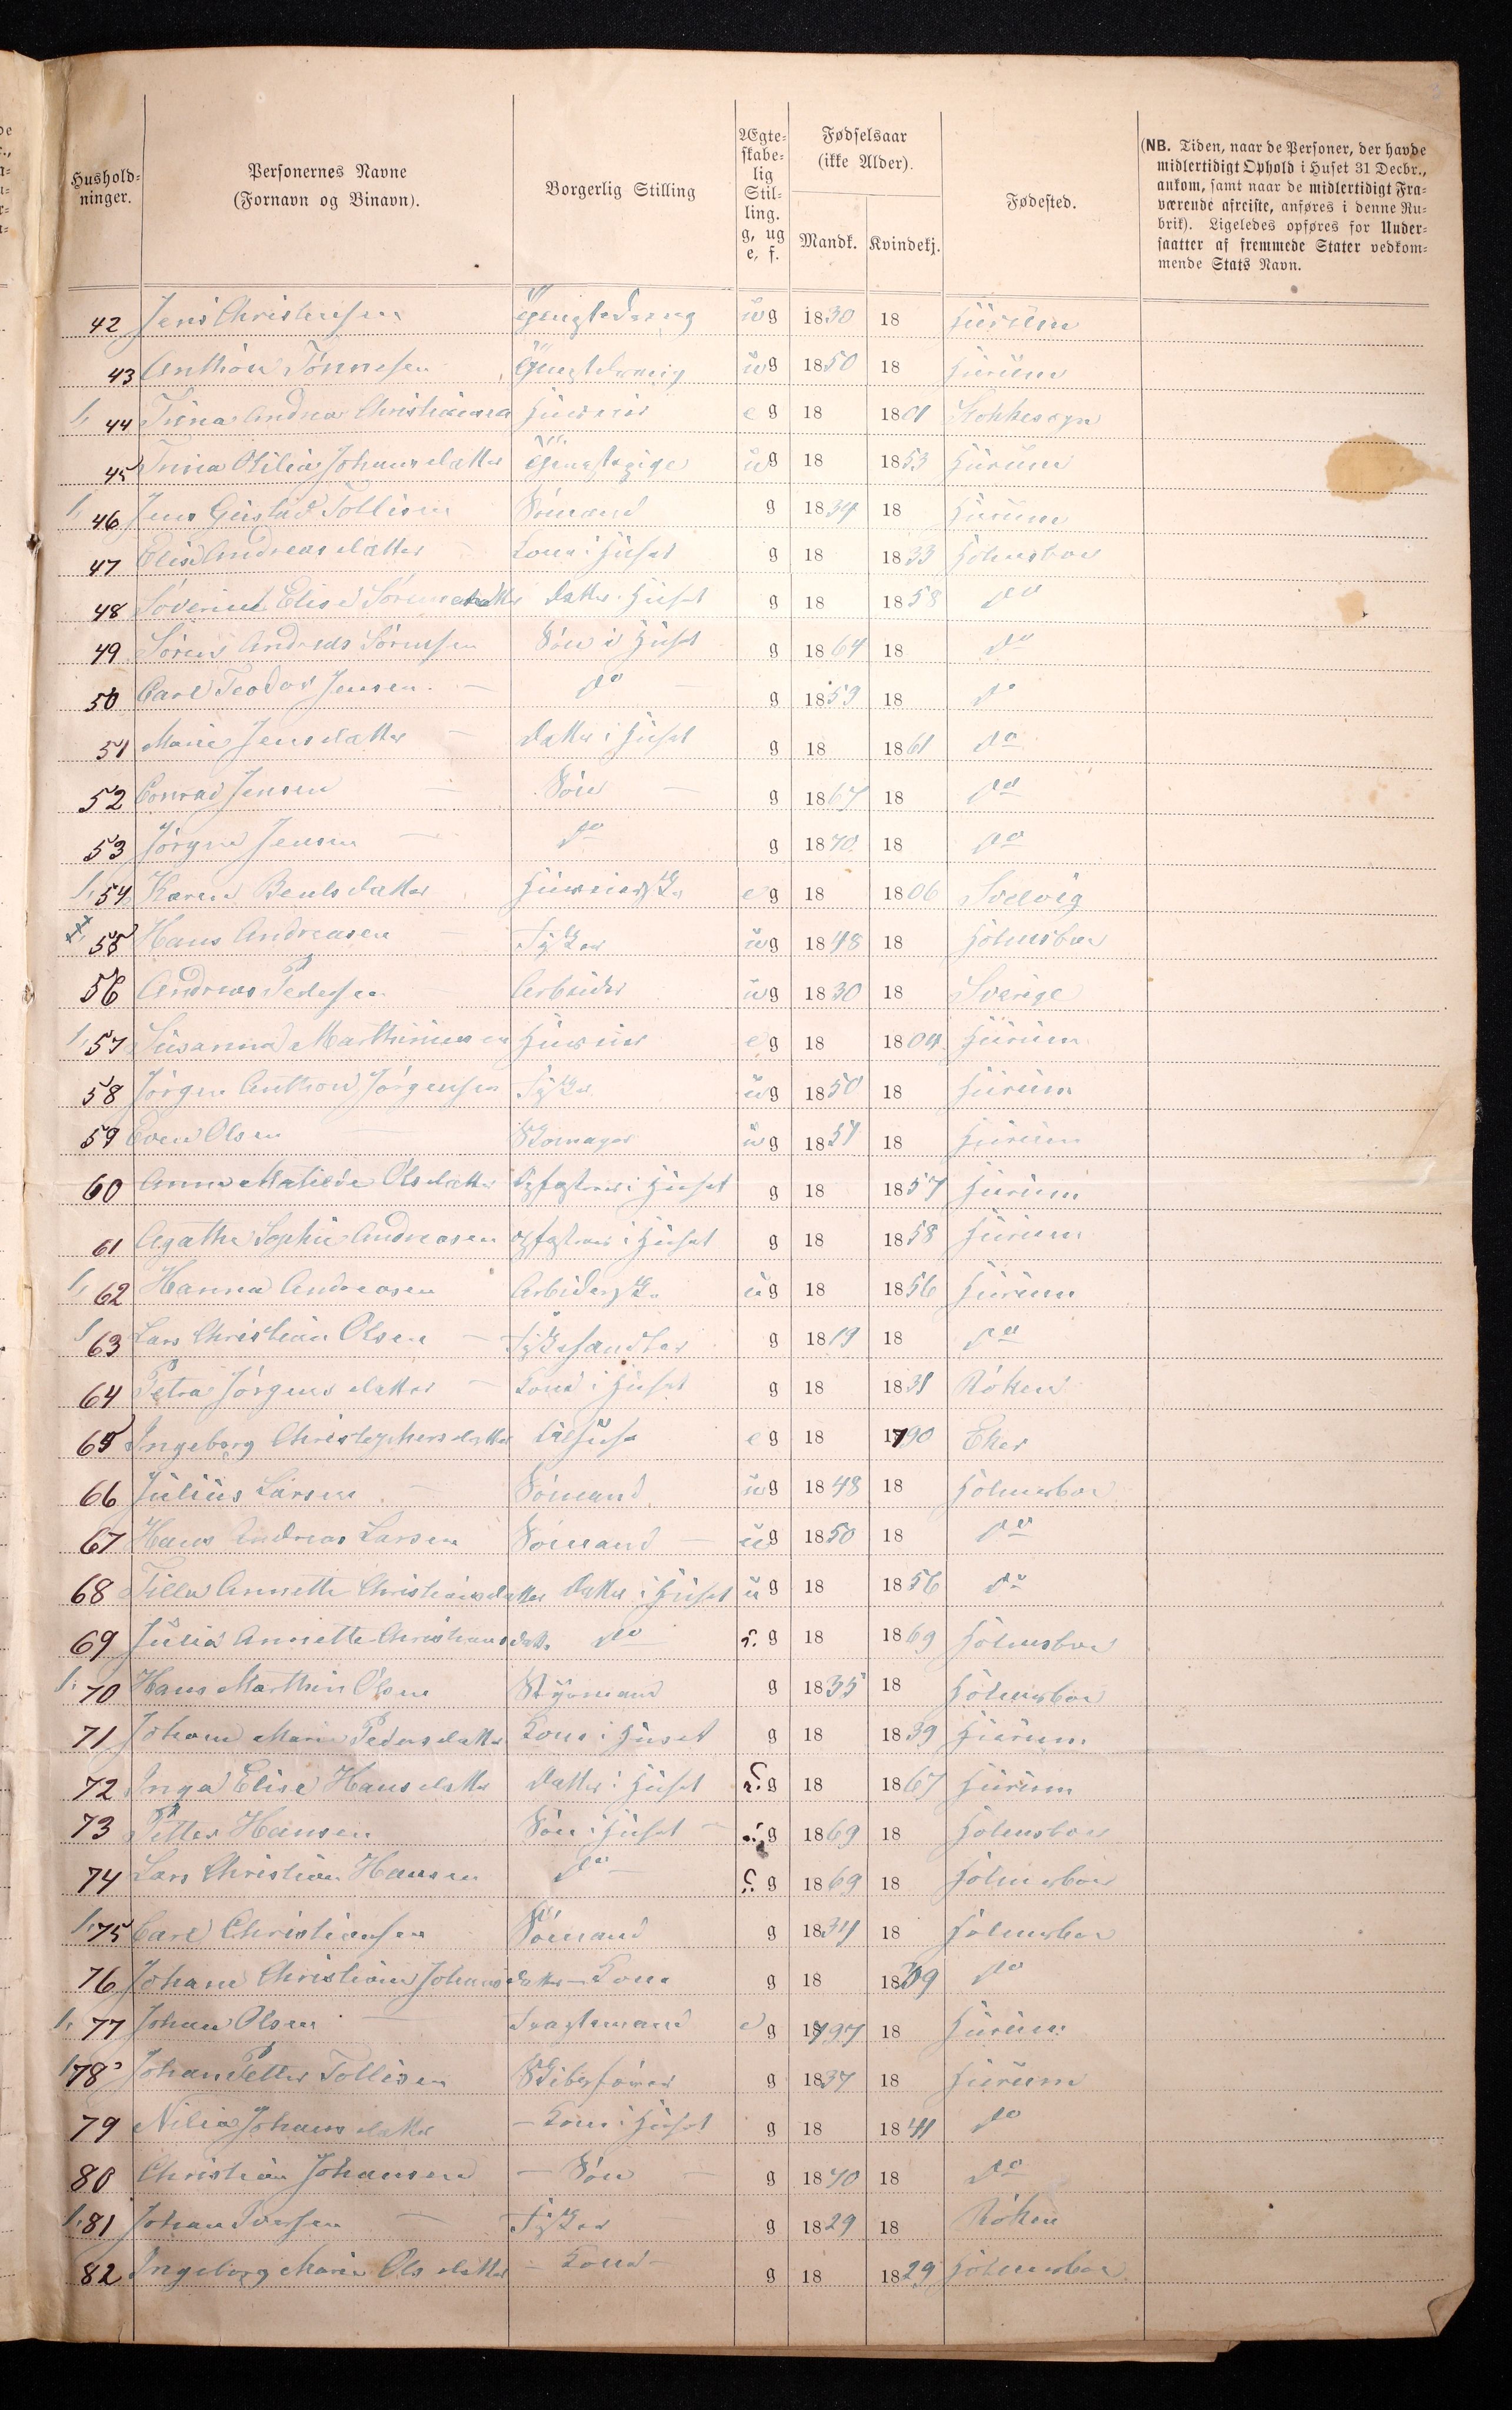 Hushold-
ninger.
Personernes Navne
(Fornavn og Binavn).
Borgerlig Stilling
Ægte-
skabe-
lig
Stil-
ling.
g, ug
e, f.
Fødselsaar
(ikke Alder).
Mandk. Kvindekj.
Fødested.
(NB. Tiden, naar de Personer, der havde
midlertidigt Ophold i Huset 31 Decbr.,
ankom, samt naar de midlertidigt Fra-
værende afreiste, anføres i denne Ru-
brik). Ligeledes opføres for Under-
saatter af fremmede Stater vedkom-
mende Stats Navn.
42 Jens Christensen ug 1830 18 Hurum
43 Anthon Tønnesen ug 1850 18 Hurum
1, 44 Trina Andrea Christiansen Huseier e g 18 1801
45 Trina Otilia Johansdatter ug 18 1853 Hurum
1, 46 Jens Gustad Tollisen Sømand g 1834 18 Hurum
47 Elise Andreasdatter Kone i Huset g 18 1833 Holmsboe
48 Elise Sørensdatter Datter i Huset g 18 1858 do
49 Søren Andreas Sørensen Søn i Huset g 1864 18 do
50 Carl Teodor Jensen do g 1859 18 do
51 Marie Jensdatter Datter i Huset g 18 1861 do
52 Conrad Jensen Søn g 1867 18 do
53 Jørgen Jensen do g 1870 18 do
1, 54 Karen Bentsdatter e g 18 1806 Svelvig
55 Hans Andreasen Fisker ug 1848 18 Holmsboe
56 Andreas Pedersen Arbeider ug 1830 18 Sverige
1, 57 Susanna Marthinusen Huseier e g 18 1804 Hurum
58 Jørgen Anthon Jørgensen Fisker ug 1850 18 Hurum
59 Even Olsen Skomager ug 1851 18 Hurum
60 Anna Matilde Olsdatter i Huset g 18 1857 Hurum
61 Agathe Sophie Andreasen i Huset g 18 1858 Hurum
1, 62 Hanna Andreasen Arbeiderske ug 18 1856 Hurum
1 63 Lars Christian Olsen Fiskehandler g 1819 18 do
64 Petra Jørgensdatter Kone i Huset g 18 1831 Røken
65 Ingeborg Christophersdatter e g 18 1790 Eker
66 Julius Larsen Sømand ug 1848 18 Holmsboe
67 Hans Andreas Larsen Sømand ug 1850 18 do
68 Tilla Annette Christiansdatter Datter i Huset ug 18 1856 do
69 Julia Annette Christiansdatter do g 18 1869 Holmsboe
1. 70 Hans Marthin Olsen Styrmand g 1835 18 Holmsboe
71 Johane Marie Pedersdatter Kone i Huset g 18 1839 Hurum
72 Inga Elise Hansdatter Datter i Huset g 18 1867 Hurum
73 Petter Hansen Søn i Huset g 1869 18 Holmsboe
74 Lars Christian Hansen do g 1869 18 Holmsboe
1. 75 Carl Christiansen Sømand g 1834 18 Holmsboe
76 Johane Christiane Johansdatter Kone g 18 1839 do
1. 77 Johan Olsen e g 1797 18 Hurum
1 78 Johan Petter Tollisen Skibsfører g 1837 18 Hurum
79 Nilia Johansdatter Kone i Huset g 18 1841 do
80 Christian Johansen Søn g 1870 18 do
1. 81 Johan Iversen Fisker g 1829 18 Røken
82 Ingeborg Marie Olsdatter Kone g 18 1829 Holmsboe